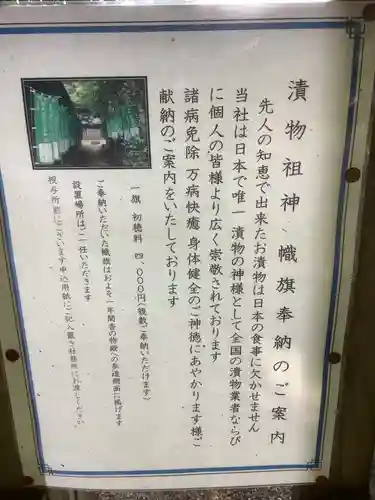 漬物祖神 幟旗奉納のご案内
先人の知恵で出来たお漬物は日本の食事に欠かせません
当社は日本で唯一 漬物の神様として全国の漬物業者ならび
に個人の皆様より広く崇敬されております
諸病免除 万病快癒 身体健全のご神徳にあやかります様ご
献納のご案内をいたしております
一旗 初穂料 四、〇〇〇円(複数ご奉納いただけます)
ご奉納いただいた幟旗はおよそ一年間香の物殿への参道側面に掲げます
設置場所はご一任いただきます
授与所前にございます申込用紙にご記入戴き社務所にお渡しください